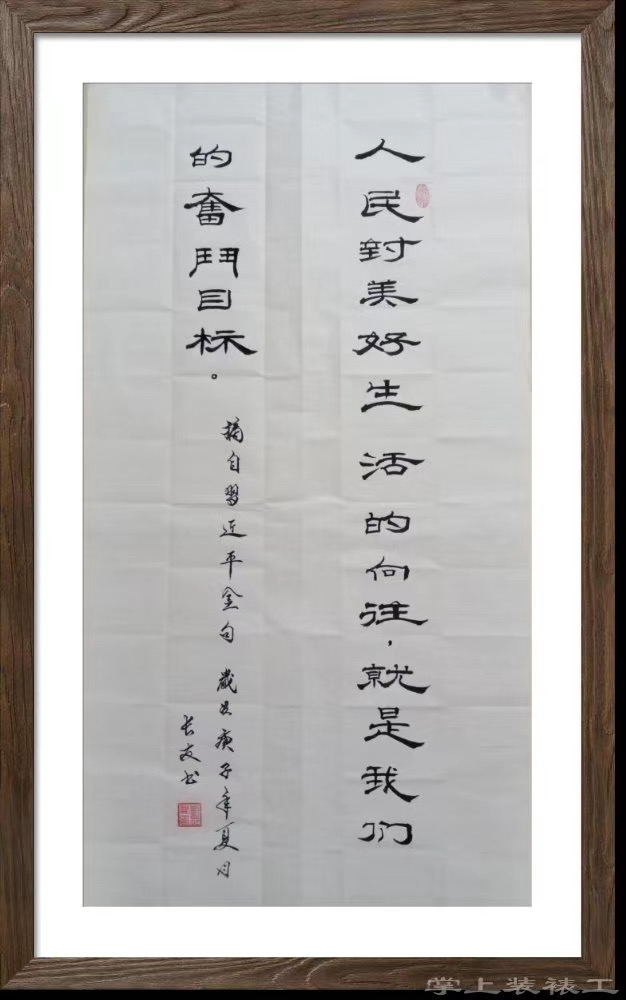 人民對美好生活的向往，就是我们
的奮鬥目标。
摘自習近平金句 歲在庚子年夏月
长友书
掌上装裱工